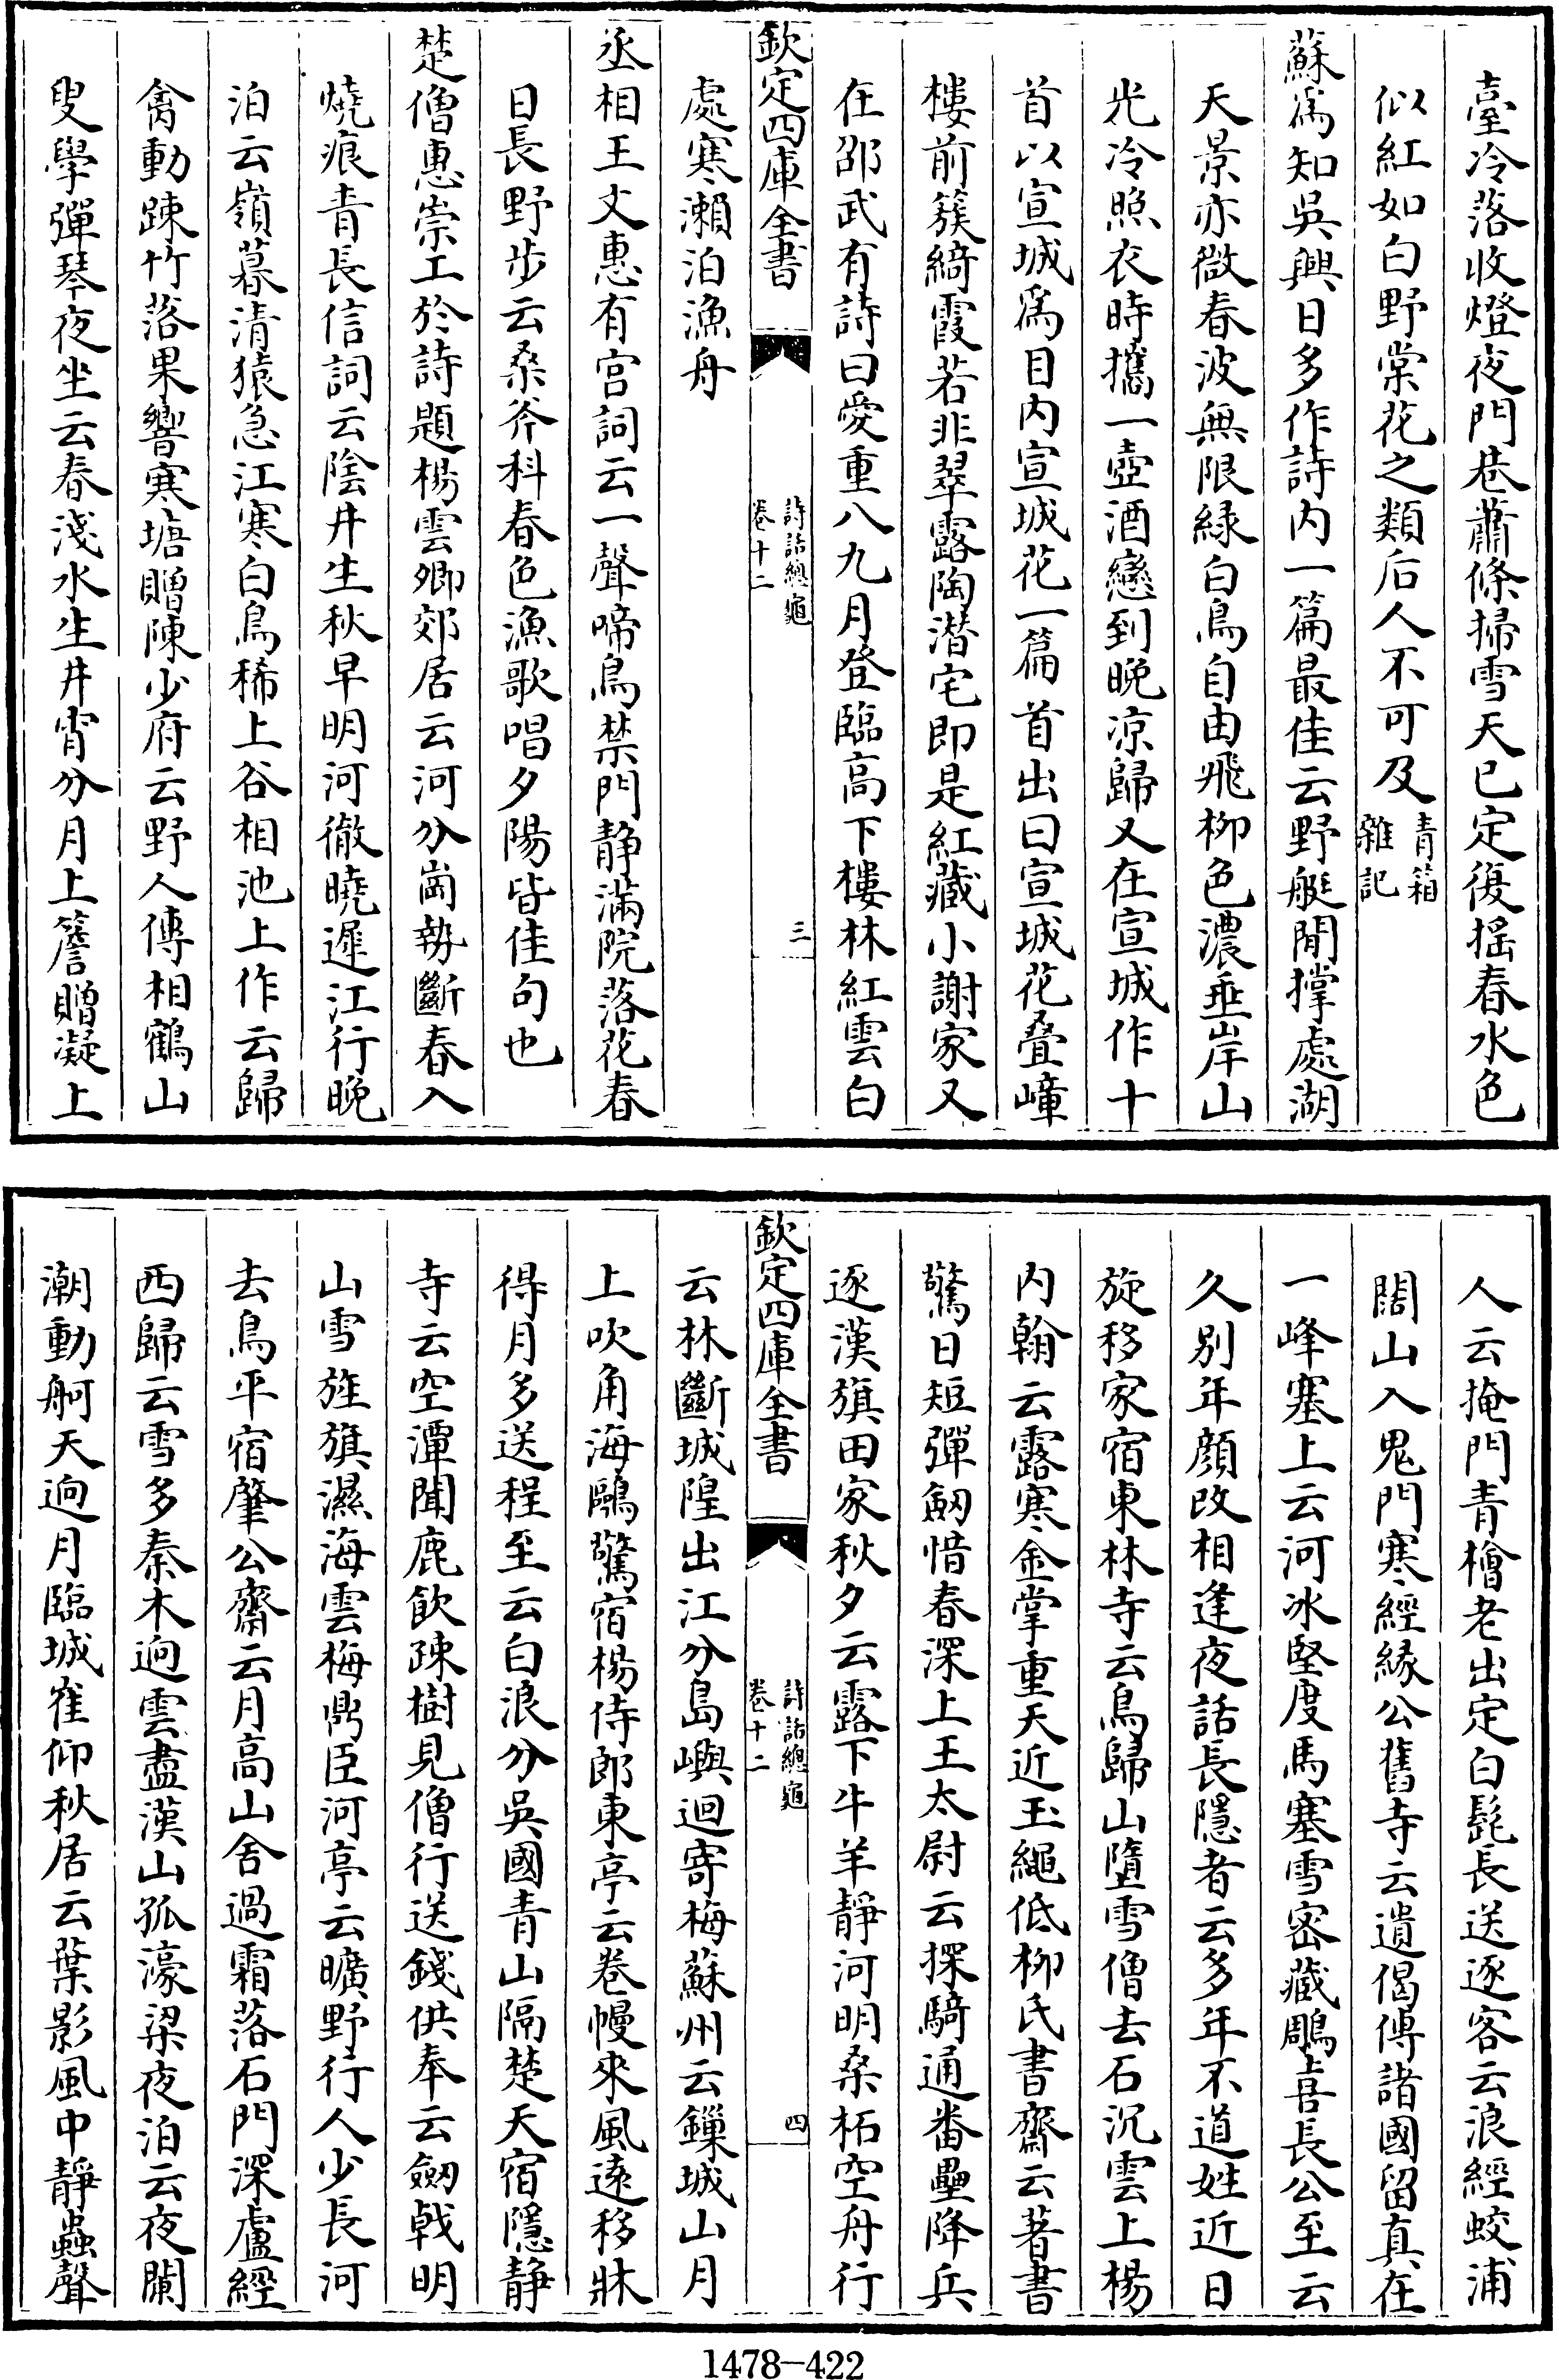 臺冷落收燈夜門巷蕭條掃雪天已定復揺春水色
似紅如白野棠花之類后人不可及青箱雜記
蘇為知吳興日多作詩内一篇最佳云野艇閒撑處湖
天景亦㣲春波無限緑白鳥自由飛栁色濃垂岸山
光冷照衣時攜一壺酒戀到晚凉歸又在宣城作十
首以宣城為目内宣城花一篇首出曰宣城花疊嶂
樓前簇綺霞若非翠露陶潜宅即是紅藏小謝家又
在邵武有詩曰愛重八九月登臨高下樓林紅雲白
欽定四庫全書
詩話總龜
卷十二
三
處寒瀨泊漁舟
丞相王文惠有宫詞云一聲啼鳥禁門静滿院落花春
日長野步云桑斧科春色漁歌唱夕陽皆佳句也
楚僧惠崇工於詩題楊雲卿郊居云河分崗勢斷春入
燒痕青長信詞云陰井生秋早明河徹曉遲江行晚
泊云嶺暮清猿急江寒白鳥稀上谷相池上作云歸
禽動踈竹落果響寒塘贈陳少府云野人傳相鶴山
叟學彈琴夜坐云春淺水生井宵分月上簷贈凝上
人云掩門青檜老出定白髭長送逐客云浪經蛟浦
闊山入鬼門寒經緣公舊寺云遺偈傳諸國留真在
一峰塞上云河冰堅度馬塞雪密藏鵰喜長公至云
久别年顔改相逢夜話長隱者云多年不道姓近日
旋移家宿東林寺云鳥歸山墮雪僧去石沉雲上楊
内翰云露寒金掌重天近玉繩低栁氏書齋云著書
驚日短彈劒惜春深上王太尉云探騎通畨壘降兵
逐漢旗田家秋夕云露下牛羊靜河明桑柘空舟行
欽定四庫全書
詩話總龜
卷十二
四
云林斷城隍出江分島嶼迴寄梅蘇州云鏁城山月
上吹角海鷗驚宿楊侍郎東亭云卷幔來風逺移牀
得月多送程至云白浪分吳國青山隔楚天宿隱静
寺云空潭聞鹿飲踈樹見僧行送錢供奉云劒戟明
山雪旌旗濕海雲梅鼎臣河亭云曠野行人少長河
去鳥平宿肇公齋云月高山舍過霜落石門深盧經
西歸云雪多秦木逈雲盡漢山孤濠梁夜泊云夜闌
潮動舸天逈月臨城崔仰秋居云葉影風中靜蟲聲
1478-422